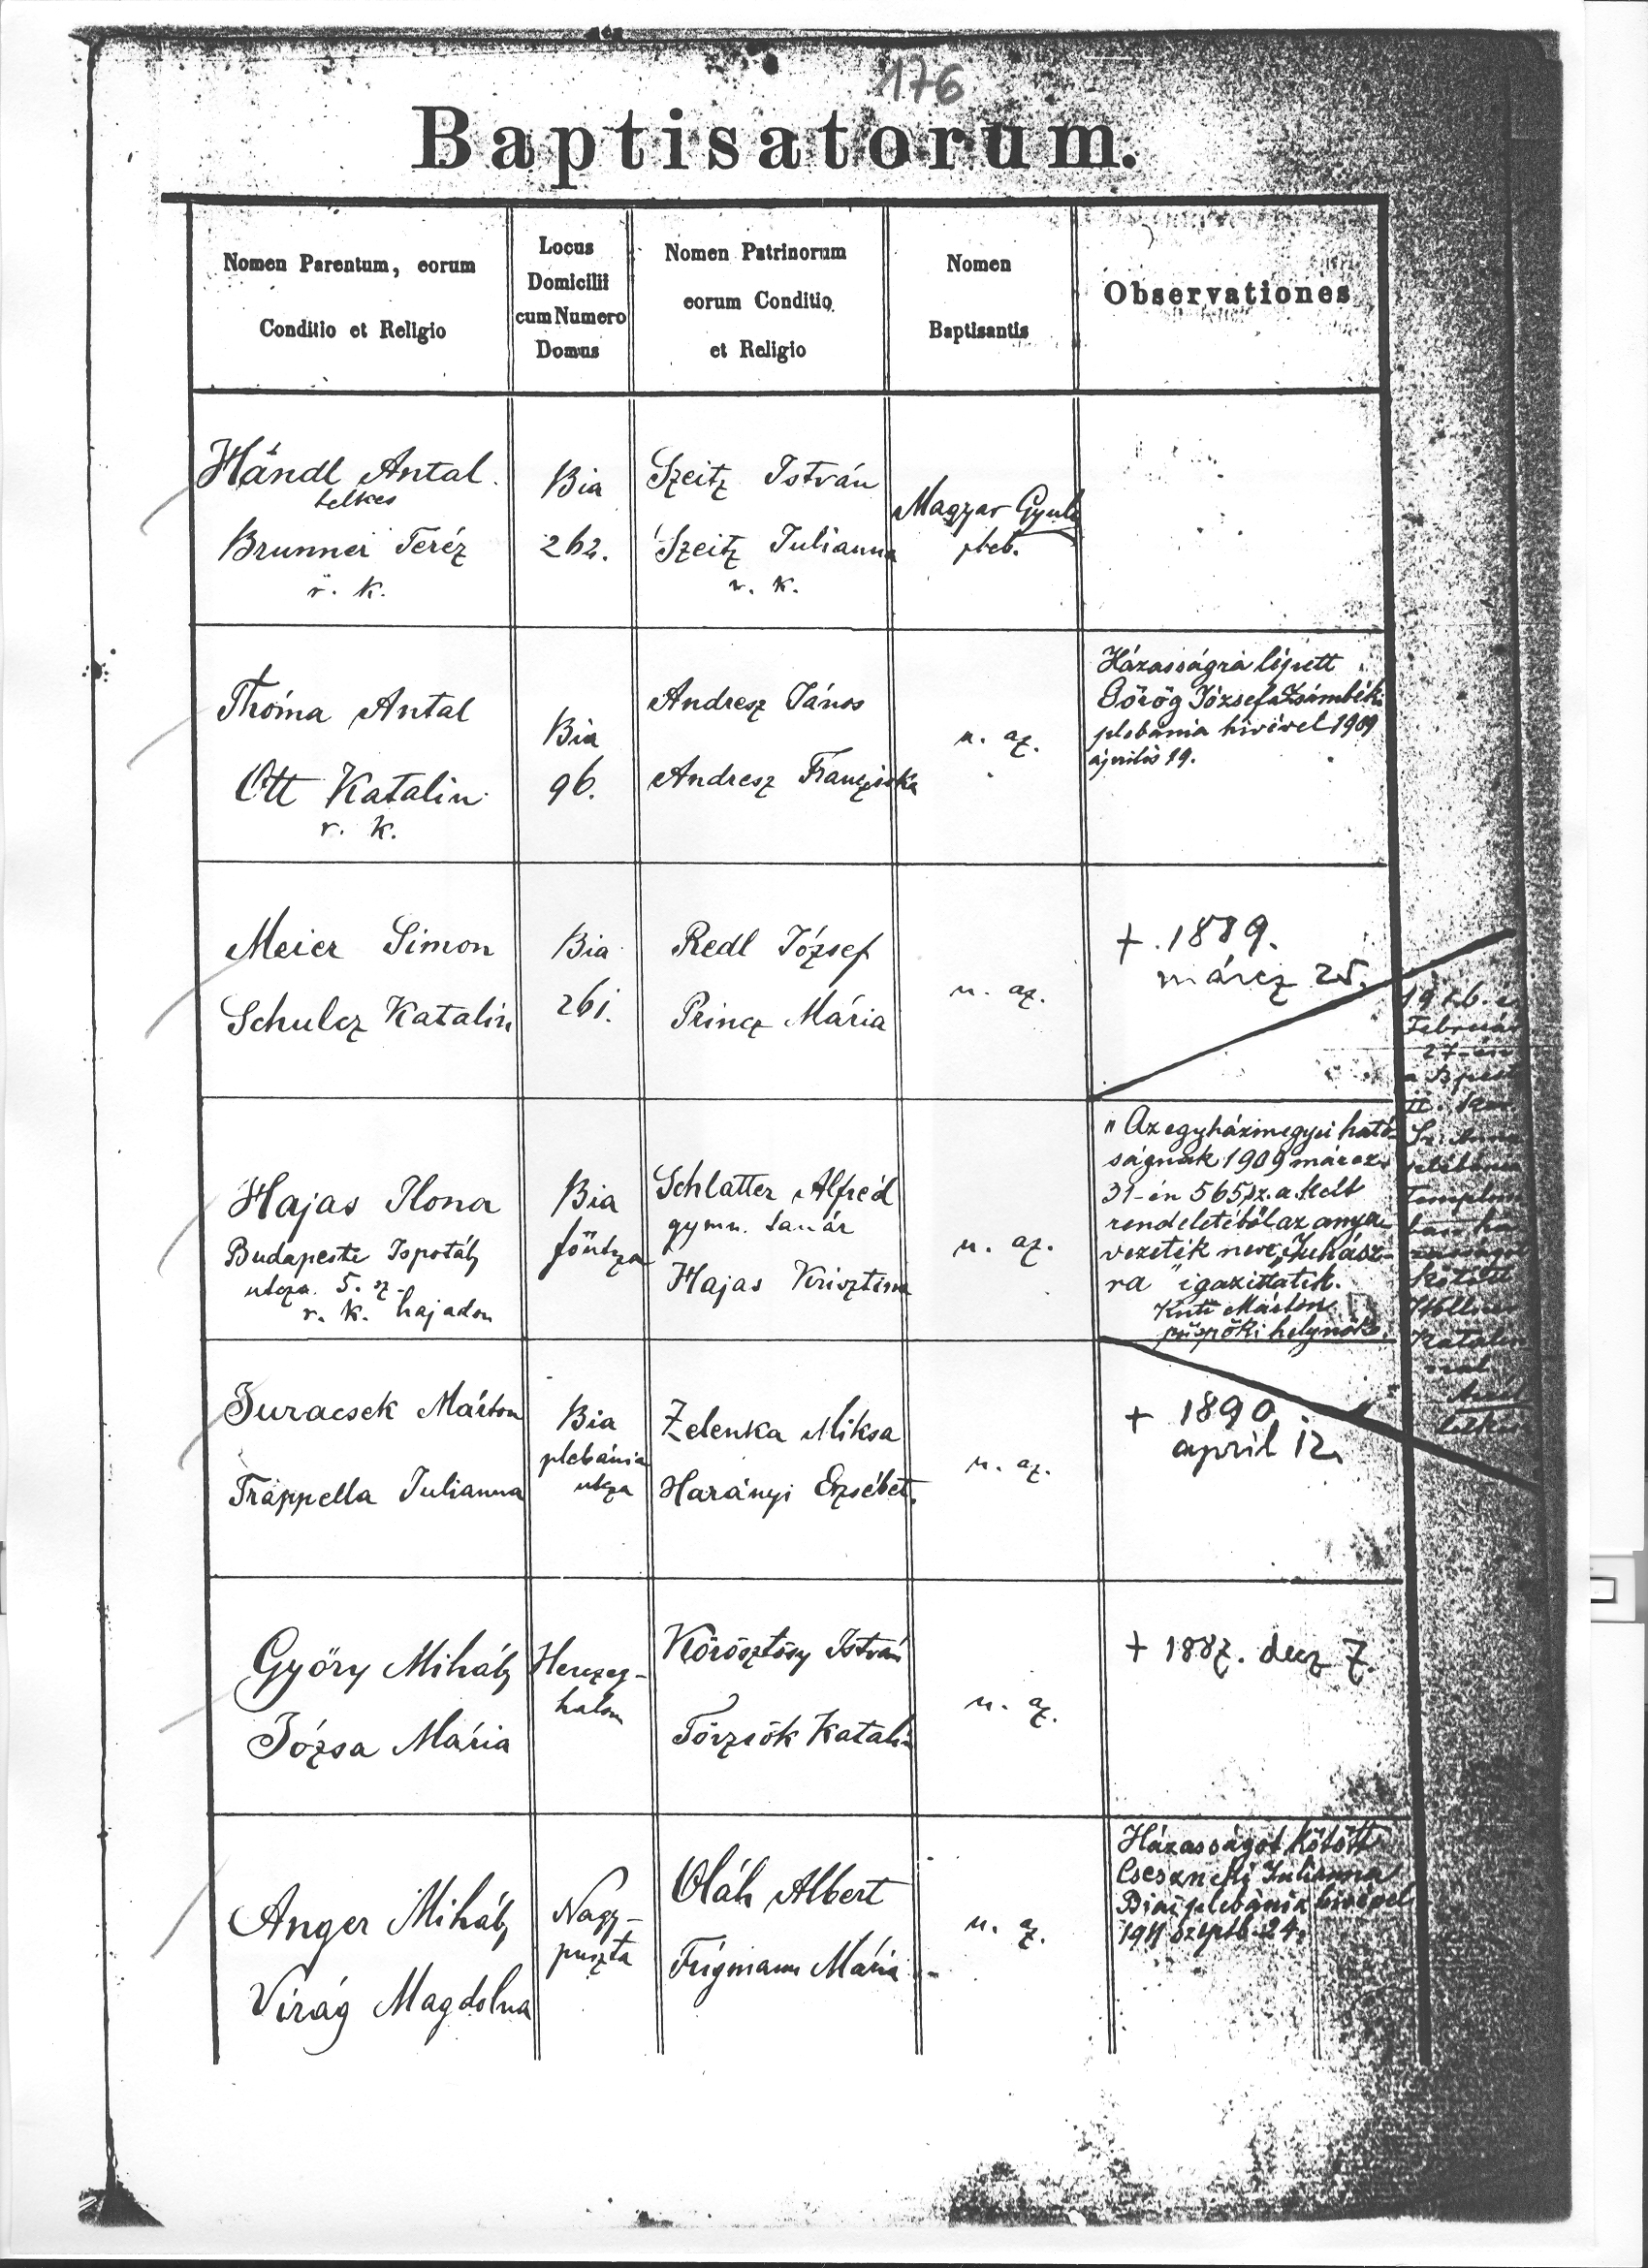 176
Baptisatorum.
Nomen Parentum, eorum
Conditio et Religio
Locus
Domicilii
cum Numero
Domus
Nomen Patrinorum
eorum Conditio
et Religio
Nomen
Baptisantis
Observationes
Händl Antal
telkes
Brunner Teréz
r. k.
Bia
262.
Szeitz István
Szeitz Julianna
r. k.
Magyar Gyula
pleb.
Thóma Antal
Ott Katalin
r. k.
Bia
96.
Andresz János
Andresz Francziska
u. az.
Házasságra lépett
Görög József a Zsámbéki
plebánia hivével 1909
április 19.
Meier Simon
Schulcz Katalin
Bia
261.
Redl József
Princz Mária
u. az.
+ 1889.
márcz 25.
Hajas Ilona
Budapesti Ispotály
utcza 5. sz.
r. k. hajadon
Bia
főutcza
Schlatter Alfréd
gymn. tanár
Hajas Krisztina
u. az.
"Az egyházmegyei ható-
ságnak 1909 márcz.
31-én 565 sz. a. kelt
rendeletéből az anya
vezeték neve "Juhász-
ra" igazittatik.
Kuti Márton
püspöki helynök.
Februá
27-én
a Bpest
Sz. Anna
plébánia
templom
kötött
Katalin
Juracsek Márton
Trappella Julianna
Bia
plebánia
utcza
Zelenka Miksa
Harányi Erzsébet
u. az.
+ 1890
april 12.
Győry Mihály
Józsa Mária
Herczeg-
halom
Körösztösy István
Törzsök Katalin
u. az.
+ 1887. decz 7.
Anger Mihály
Virág Magdolna
Nagy-
puszta
Oláh Albert
Frigmann Mária
u. az.
Házasságot kötött
Cseszneki Julianna
Biai plebánia hivével
1911 szeptb. 24.